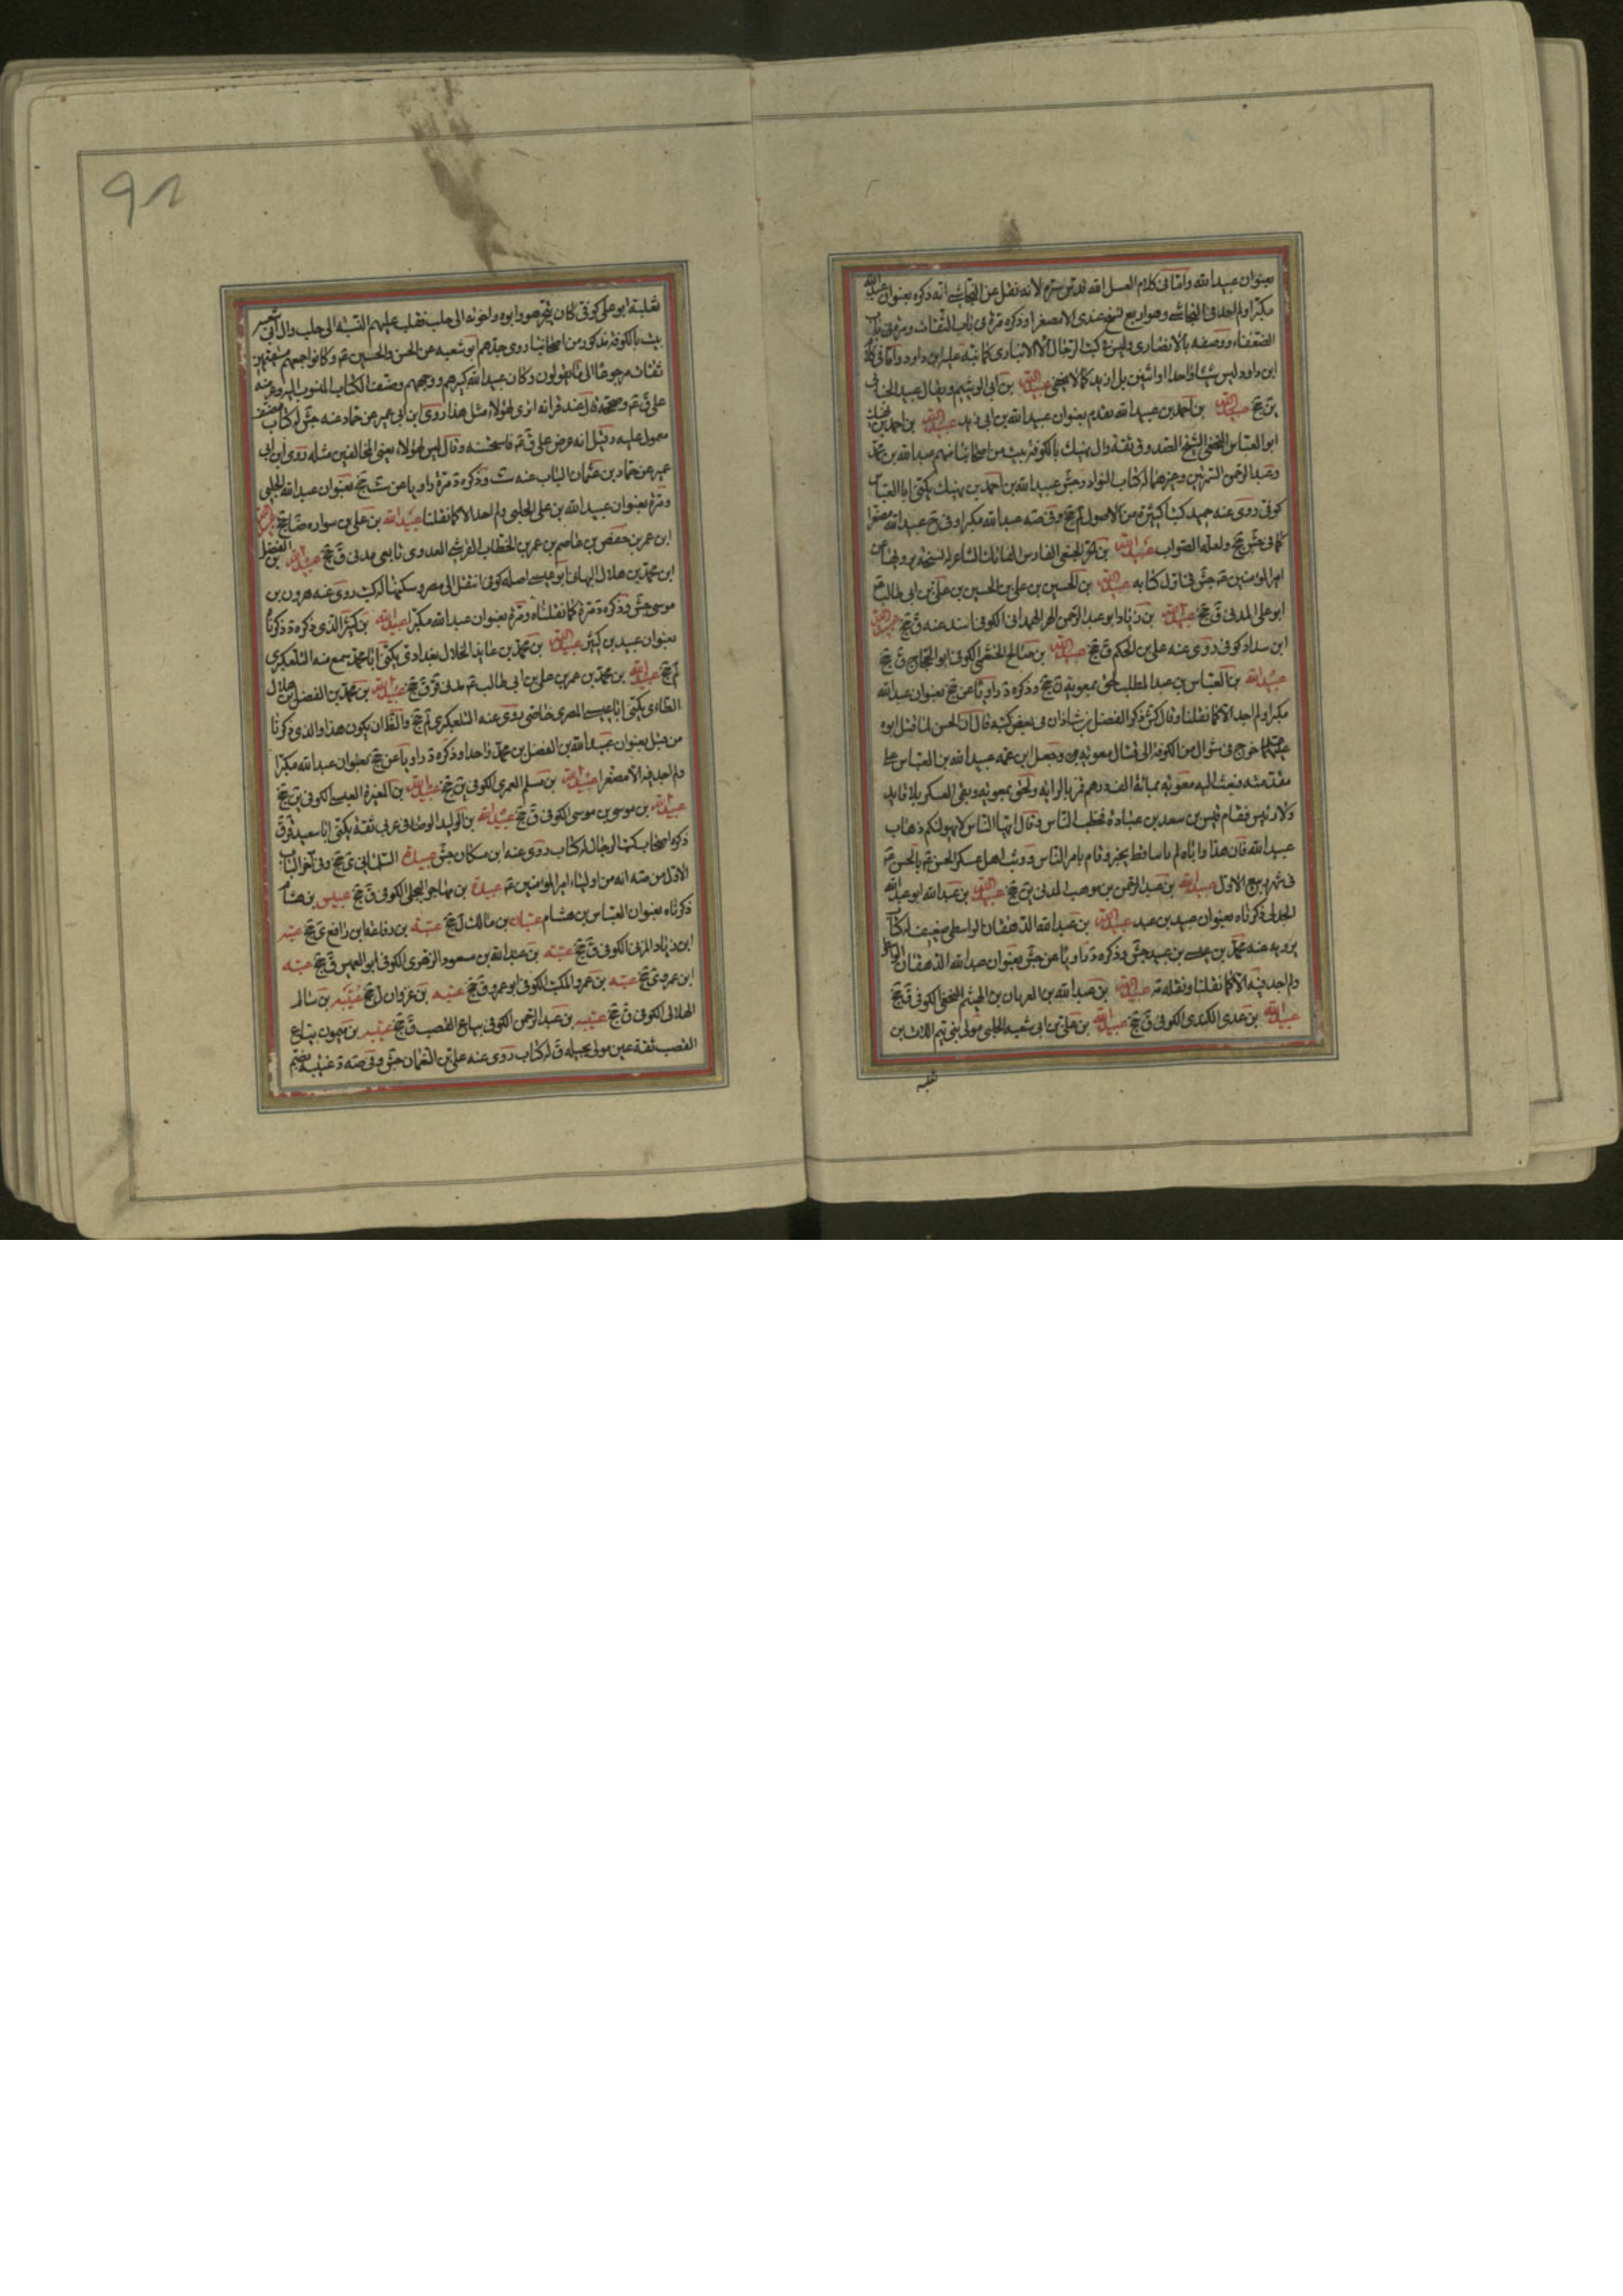 بعنوان عبد الله واما فى كلام العلامة قدس سره لانه نقل عن النجاشى انه ذكره بعنوان عبد الله
مكبرا ولم اجد فى النجاشى وهو اربع نسخ عندى الا مصغرا وذكره مرة فى باب الثقات ومرة فى باب
الضعفاء ووصفه بالانصارى وليس فى كتب الرجال الا الانبارى كما نبه عليه ابن داود واما فى كلام
ابن داود ليس شيئا واحدا او اثنين بل ازيد كما لا يخفى عبيد الله بن ابى الوشيم ويقال عبيد
ين جخ عبيد الله بن احمد بن عبيد الله تقدم بعنوان عبيد الله بن ابى زيد عبيد الله بن احمد بن نهيك
ابو العباس النخعى الشيخ الصدوق ثقة وال نهيك بالكوفة بيت من اصحابنا منهم عبد الله بن محمد
وعبد الرحمن السمريين وغيرهما له كتاب النوادر جش عبيد الله بن احمد بن نهيك يكنى ابا العباس
كوفى روى عنه حميد كتبا كثيرة من الاصول لم جخ وفى صه عبد الله مكبرا وفى ح عبيد الله مصغرا
كما فى جش جخ ولعله الصواب عبيد الله بن الحر الجعفى الفارس الفاتك الشاعر له نسخة يرويها عن
امير المؤمنين ع جش فى اول كتابه عبيد الله بن الحسين بن على بن الحسين بن على بن ابى طالب ع
ابو على المدنى ق جخ عبيد الله بن زياد ابو عبد الرحمن الهمدانى الكوفى اسند عنه ق جخ عبيد الله
ابن سداد كوفى روى عنه على بن الحكم ق جخ عبيد الله بن صالح الخثعمى الكوفى ابو الحجاج ق جخ
عبيد الله بن العباس بن عبد المطلب لحق بمعوية ن جخ وذكره د راويا عن جخ بعنوان عبد الله
مكبرا ولم اجد الا كما نقلنا وقال كش ذكر الفضل بن شاذان فى بعض كتبه قال ان الحسن لما قتل ابوه
عليهما خرج فى شوال من الكوفة الى قتال معوية وجعل ابن عمه عبيد الله بن العباس على
مقدمته فبعث اليه معوية بمائة الف درهم فمر بالراية ولحق بمعوية وبقى العسكر بلا قايد
ولا رئيس فقام قيس بن سعد بن عبادة فخطب الناس فقال ايها الناس لا يهولنكم ذهاب
عبيد الله فان هذا واباه لم ياتيا قط بخير وقام بامر الناس ووثب اهل عسكر الحسن ع بالحسن ع
فى شهر ربيع الاول عبيد الله بن عبد الرحمن بن موهب المدنى ين جخ عبيد الله بن عبد الله ابو عبد الله
الجدلى ذكرناه بعنوان عبيد بن عبد عبيد الله بن عبد الله الدهقان الواسطى ضعيف له كتاب
يرويه عنه محمد بن عيسى بن عبيد جش وذكره د راويا عن جش بعنوان عبد الله الدهقان الواسطى
ولم اجد فيه الا كما نقلنا ونقله صه عبيد الله بن عبد الله بن العريان بن الهيثم النخعى الكوفى ق جخ
عبيد الله بن عدى الكندى الكوفى ق جخ عبيد الله بن على بن ابى شعبة الحلبى مولى بنى تيم اللات بن
ثعلبة
٩٨
ثعلبة ابو على كوفى كان يتجر هو وابوه واخوته الى حلب فغلب عليهم النسبة الى حلب وال ابى شعبة
بيت بالكوفة مذكور من اصحابنا روى جدهم ابو شعبة عن الحسن والحسين ع وكانوا جميعهم
ثقات مرجوعا الى ما يقولون وكان عبيد الله كبيرهم ووجههم وصنف الكتاب المنسوب اليه وعرضه
على ق ع وصححه قال عند قرائته اترى لهؤلاء مثل هذا روى ابن ابى عمير عن حماد عنه جش له كتاب مصنف
معمول عليه وقيل انه عرض على ق ع فاستحسنه وقال ليس لهؤلاء يعنى المخالفين مثله روى ابن ابى
عمير عن حماد بن عثمان الناب عنه ست وذكره د مرة راويا عن ست جخ بعنوان عبد الله الحلبى
ومرة بعنوان عبيد الله بن على الحلبى ولم اجد الا كما نقلنا عبيد الله بن على بن سواره جخ
ابن عمر بن حفص بن عاصم بن عمر بن الخطاب القرشى العدوى تابعى مدنى ق جخ عبيد الله بن الفضل
ابن محمد بن هلال النبهانى ابو عيسى اصله كوفى انتقل الى مصر وسكنها له كتب روى عنه هرون بن
موسى جش وذكره د مرة كما نقلناه ومرة بعنوان عبد الله مكبرا عبيد الله بن كثير الذى ذكره د ذكرناه
بعنوان عبيد بن كثير عبيد الله بن محمد بن عايذ الحلال بغدادى يكنى ابا محمد سمع منه التلعكبرى
لم جخ عبيد الله بن محمد بن عمر بن على بن ابى طالب ع مدنى قر ق جخ عبيد الله بن محمد بن الفضل بن هلال
الطائى يكنى ابا عيسى المصرى خاصى روى عنه التلعكبرى لم جخ والظ ان يكون هذا والذى ذكرنا
من قبل بعنوان عبيد الله بن الفضل بن محمد واحدا وذكره د راويا عن جخ بعنوان عبد الله مكبرا
ولم اجد فيه الا مصغرا عبيد الله بن مسلم العمرى الكوفى ين جخ عبيد الله بن المغيرة العبسى الكوفى ين جخ
عبيد الله بن موسى بن موسى الكوفى ق جخ عبيد الله بن الوليد الوصافى عربى ثقة يكنى ابا سعيد ق
ذكره اصحاب كتب الرجال له كتاب روى عنه ابن مسكان جش عبيدة السلمانى ى جخ وفى اخر الباب
الاول من صه انه من اولياء امير المؤمنين ع عبيدة بن مهاجر البجلى الكوفى ق جخ عبيس بن هشام
ذكرناه بعنوان العباس بن هشام عتبان بن مالك ل جخ عتبة بن رفاعة ابن رافع ى جخ عتبة
ابن زياد المزنى الكوفى ق جخ عتبة بن عبد الله بن مسعود الزهرى الكوفى ابو العميس ق جخ عتبة
ابن عمرو ى جخ عتبة بن عمرو المكتب الكوفى ابو عمرو ق جخ عتبة بن غزوان ل جخ عتيبة بن سالم
الهلالى الكوفى ق جخ عتيبة بن عبد الرحمن الكوفى بياع القصب ق جخ عتيبة بن ميمون بياع
القصب ثقة عين مولى بجيلة ق له كتاب روى عنه على بن النعمان جش وفى صه د عتيبة بضم